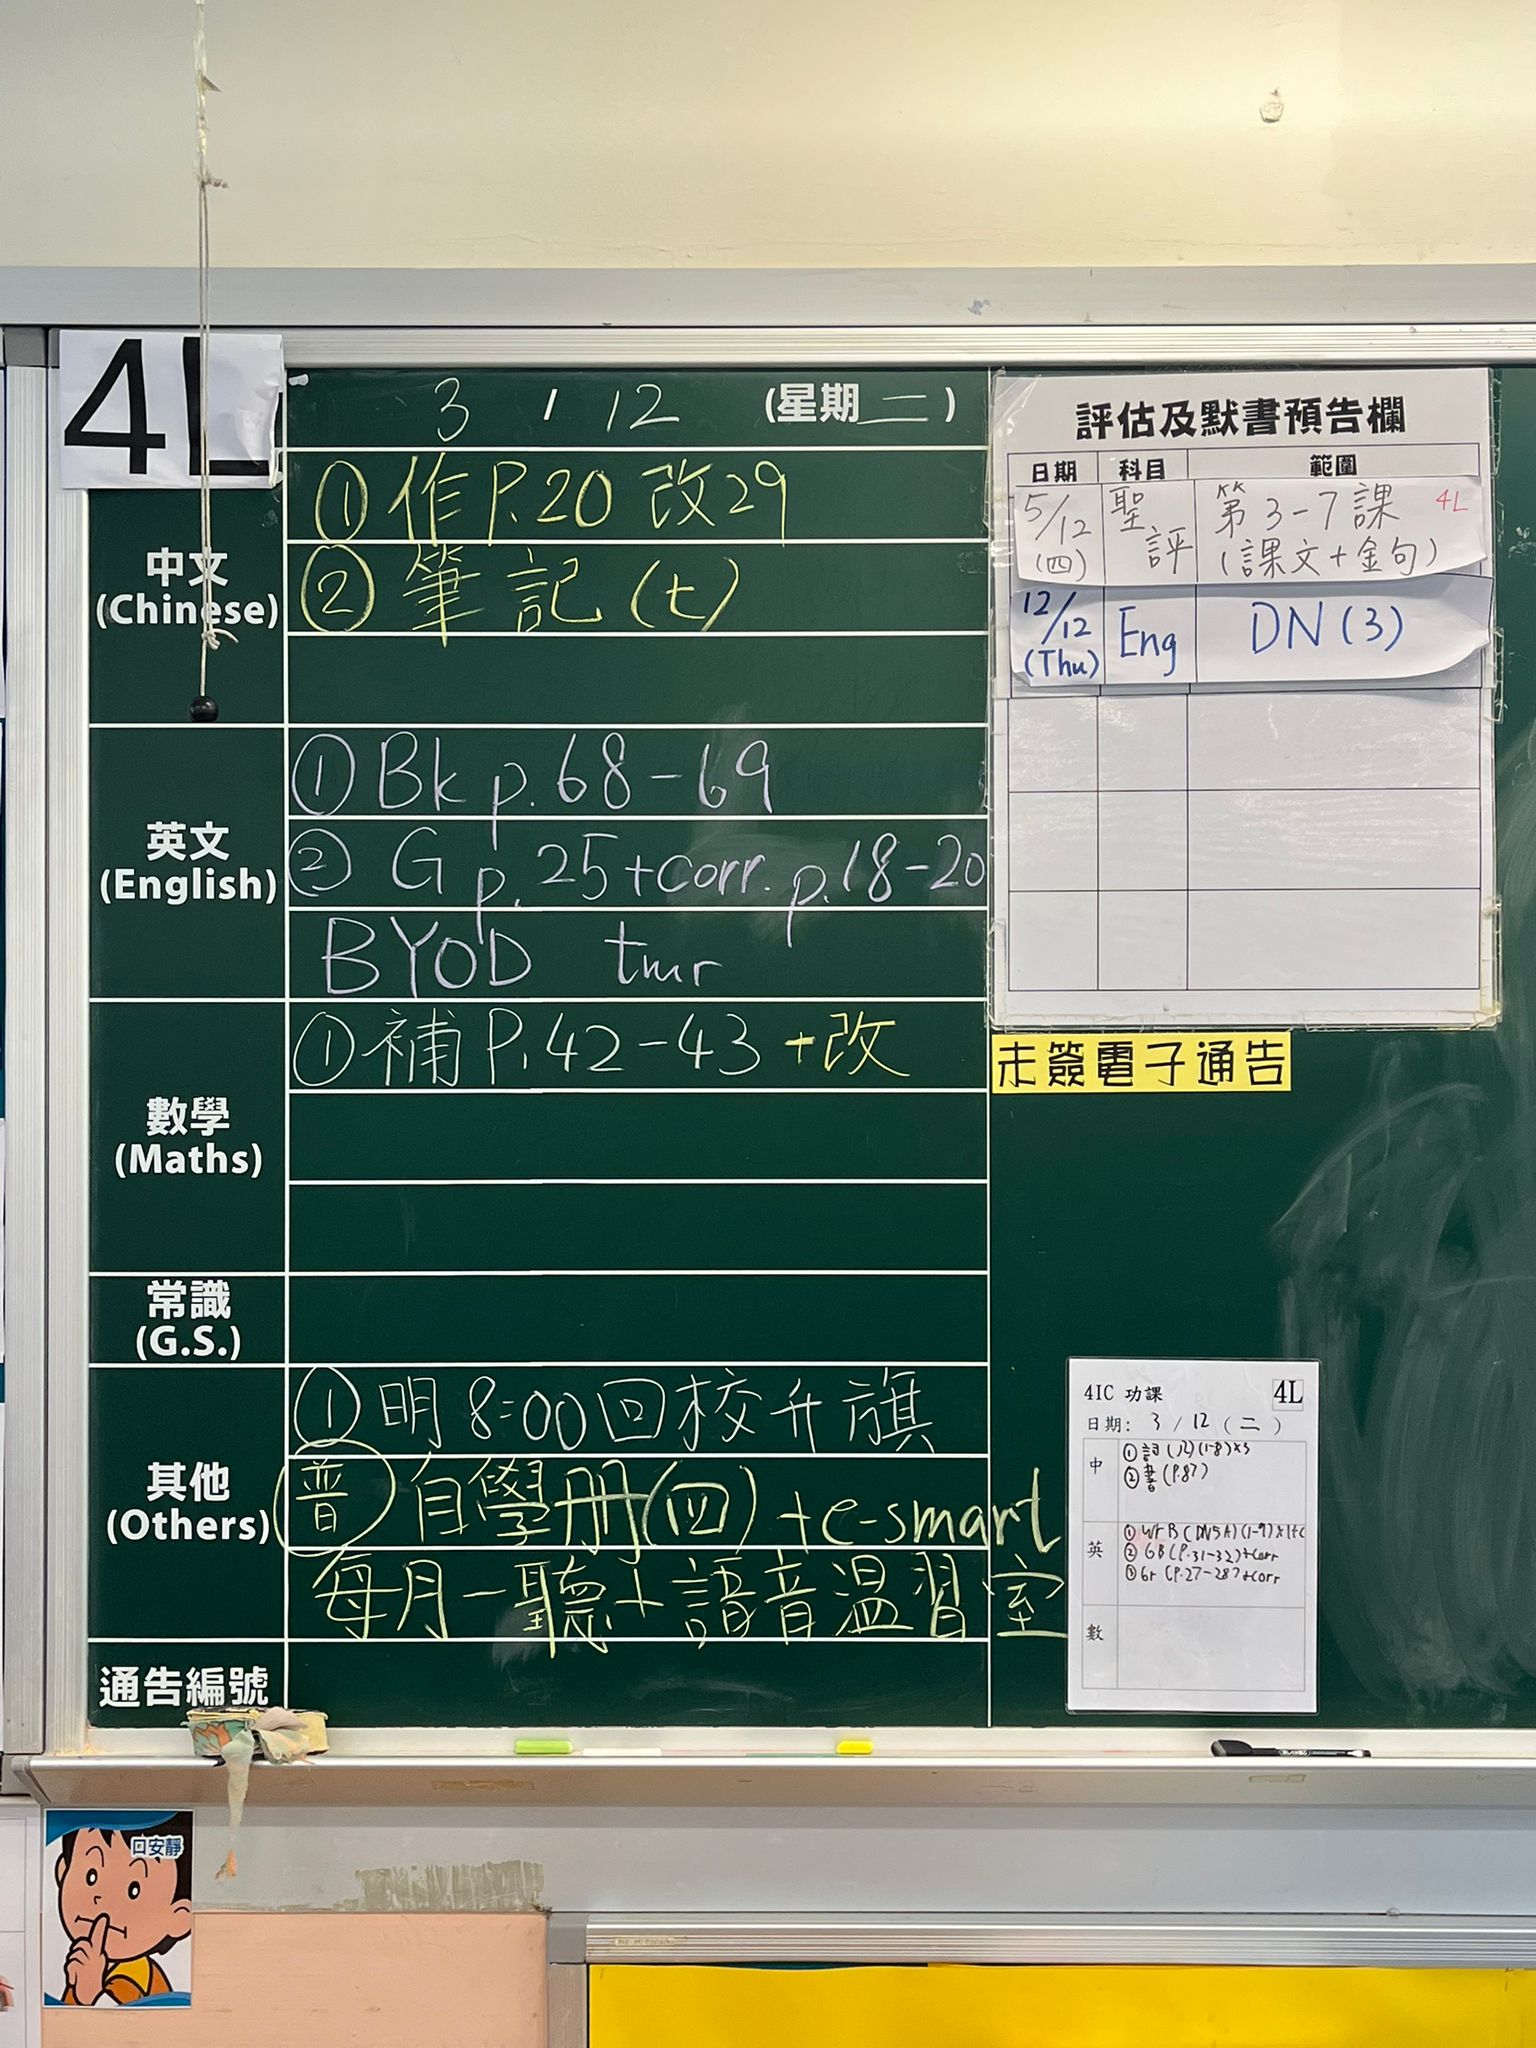 4L
3 / 12 (星期二)
中文
(Chinese)
① 作 P.20 改29
② 筆記(七)
英文
(English)
① Bk p.68-69
② G p.25+corr. p.18-20
BYOD tmr
數學
(Maths)
① 補 P.42-43 +改
常識
(G.S.)
其他
(Others)
① 明 8:00回校升旗
普 自學册(四)+e-smart
每月一聽+語音溫習室
通告編號
評估及默書預告欄
日期 科目 範圍
5/12 (四) 聖評 第3-7課 4L
(課文+金句)
12/12 (Thu) Eng DN(3)
未簽電子通告
4IC 功課 4L
日期: 3 / 12 (二)
中
① 詞(八)(1-8)x3
② 書(P.87)
英
① WrB(DN5A)(1-9)x1+c
② GB(P.31-32)+corr
③ Gr(P.27-28)+corr
數
口安靜